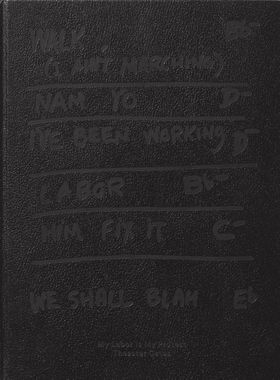 WALK Bb-
(I AIN'T MARCHING)
NAM YO D-
I'VE BEEN WORKING D-
LABOR Bb-
HIM FIX IT C-
WE SHALL BLAH Eb
My Labor Is My Protest
Theaster Gates